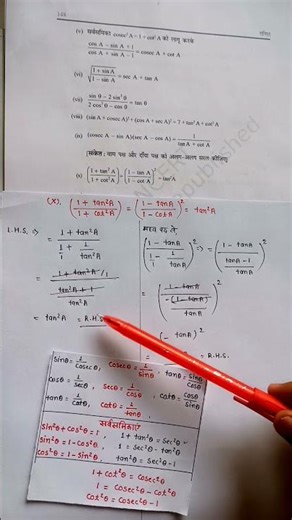 (v) सर्वसमिका cosec² A = 1 + cot² A को लागू करके
cos A – sin A + 1
cos A + sin A – 1
= cosec A + cot A
(vi) √(1 + sin A / 1 – sin A) = sec A + tan A
(vii) sin θ – 2 sin³ θ / 2 cos³ θ – cos θ = tan θ
(viii) (sin A + cosec A)² + (cos A + sec A)² = 7 + tan² A + cot² A
(ix) (cosec A – sin A)(sec A – cos A) = 1 / tan A + cot A
[संकेत: वाम पक्ष और दाँया पक्ष को अलग-अलग सरल कीजिए]
(x) (1 + tan² A / 1 + cot² A) = (1 – tan A / 1 – cot A)² = tan² A
(x). (1 + tan²A / 1 + cot²A) = (1 – tanA / 1 – cotA)² = tan²A
L.H.S. ⇒ 1 + tan²A
1/1 + 1/tan²A
= 1 + tan²A / 1
tan²A + 1
tan²A
= tan²A = R.H.S.
(1 – tanA / 1/1 – 1/tanA)² ⇒ (1 – tanA / tanA – 1 / tanA)²
= (1 – tanA / –(1 – tanA) / tanA)²
(– tanA)²
= R.H.S.
sinθ = 1/cosecθ, cosecθ = 1/sinθ, tanθ = sinθ/cosθ
cosθ = 1/secθ, secθ = 1/cosθ, cotθ = cosθ/sinθ
tanθ = 1/cotθ, cotθ = 1/tanθ,
सर्वसमिकाएँ
sin²θ + cos²θ = 1, 1 + tan²θ = sec²θ
sin²θ = 1 – cos²θ, 1 = sec²θ – tan²θ
cos²θ = 1 – sin²θ, tan²θ = sec²θ – 1
1 + cot²θ = cosec²θ
1 = cosec²θ – cot²θ
cot²θ = cosec²θ – 1